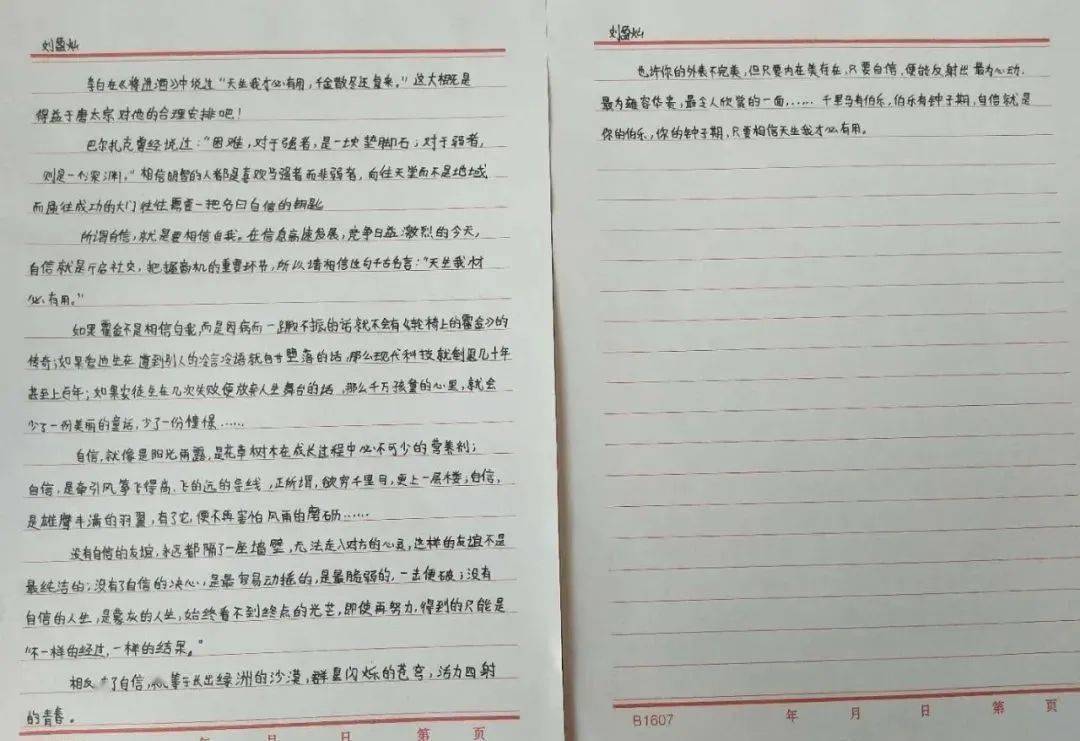 刘盈灿
李白在《将进酒》中说过“天生我才必有用，千金散尽还复来。”这大概是
得益于唐太宗对他的合理安排吧！
巴尔扎克曾经说过：“困难，对于强者，是一块垫脚石；对于弱者，
则是一个深渊。”相信明智的人都是喜欢当强者而非弱者，向往天堂而不是地域
而通往成功的大门往往需要一把名曰自信的钥匙
所谓自信，就是要相信自我。在信息高速发展，竞争日益激烈的今天，
自信就是开启社交，把握商机的重要环节，所以请相信这句千古名言：“天生我材
必有用。”
如果霍金不是相信自我，而是因病而一蹶不振的话就不会有《轮椅上的霍金》的
传奇；如果爱迪生在遭到别人的冷言冷语就自甘堕落的话，那么现代科技就倒退几十年
甚至上百年；如果安徒生在几次失败便放弃人生舞台的话，那么千万孩童的心里，就会
少了一份美丽的童话，少了一份憧憬……
自信，就像是阳光雨露，是花草树木在成长过程中必不可少的营养剂；
自信，是牵引风筝飞得高、飞的远的导线，正所谓，欲穷千里目，更上一层楼；自信，
是雄鹰丰满的羽翼，有了它，便不再害怕风雨的磨砺……
没有自信的友谊，永远都隔了一座墙壁，无法走入对方的心灵，这样的友谊不是
最纯洁的；没有了自信的决心，是最容易动摇的，是最脆弱的，一击便破；没有
自信的人生，是蒙灰的人生，始终看不到终点的光芒，即使再努力，得到的只能是
“不一样的经过，一样的结果。”
相反 了自信， 等于长出绿洲的沙漠，群星闪烁的苍穹，活力四射
的青春。
年 月 日 第 页
刘盈灿
也许你的外表不完美，但只要内在美存在，只要自信，便能反射出最为心动、
最为雍容华贵，最令人欣赏的一面，……千里马有伯乐，伯乐有钟子期，自信就是
你的伯乐，你的钟子期，只要相信天生我才必有用。
B1607 年 月 日 第 页